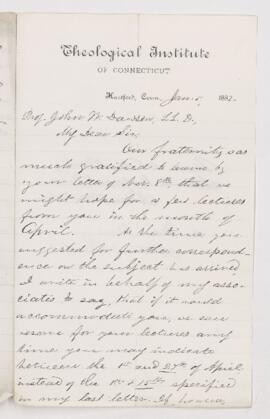 Theological Institute
OF CONNECTICUT.
Hartford, Conn. Jan. 1882.
Prof. John W. Dawson, LL.D.
My Dear Sir,
Our fraternity was
much gratified to learn by
your letter of Nov. 8th, that we
might hope for a few lectures
from you in the month of
April. As the time you
suggested for further correspond-
ence on the subject has arrived
I write in behalf of my asso-
ciates to say, that if it would
accommodate you, we can
reserve for your lectures any
time you may indicate
between the 1st and 27th of April
instead of the 1st & 15th specified
in my last letter. If, however,